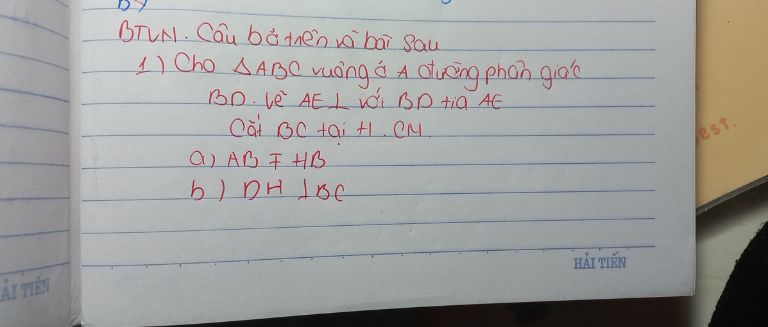 BTVN. Câu bở trên và bài sau
1) Cho △ABC vuông ở A đường phân giác
BD. Vẽ AE ⊥ với BD tia AE
Cắt BC tại H. CM
a) AB = HB
b) DH ⊥ BC
HẢI TIẾN
ẢI TIẾN
est.